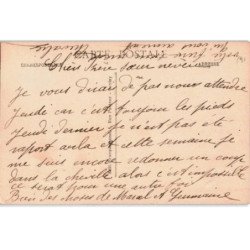 CARTE POSTALE
CORRESPONDANCE
Chers Frère Sœur neveu
je vous dirais de pas nous attendre
Jeudi car c'est toujours les pieds
Jeudi dernier je n'est pas été
raport a cela et cette semaine je
me suis encore redonner un coup
dans la cheville alors c'est impossible
ce serat pour une autre fois
Bon des choses de Marcel et Germaine